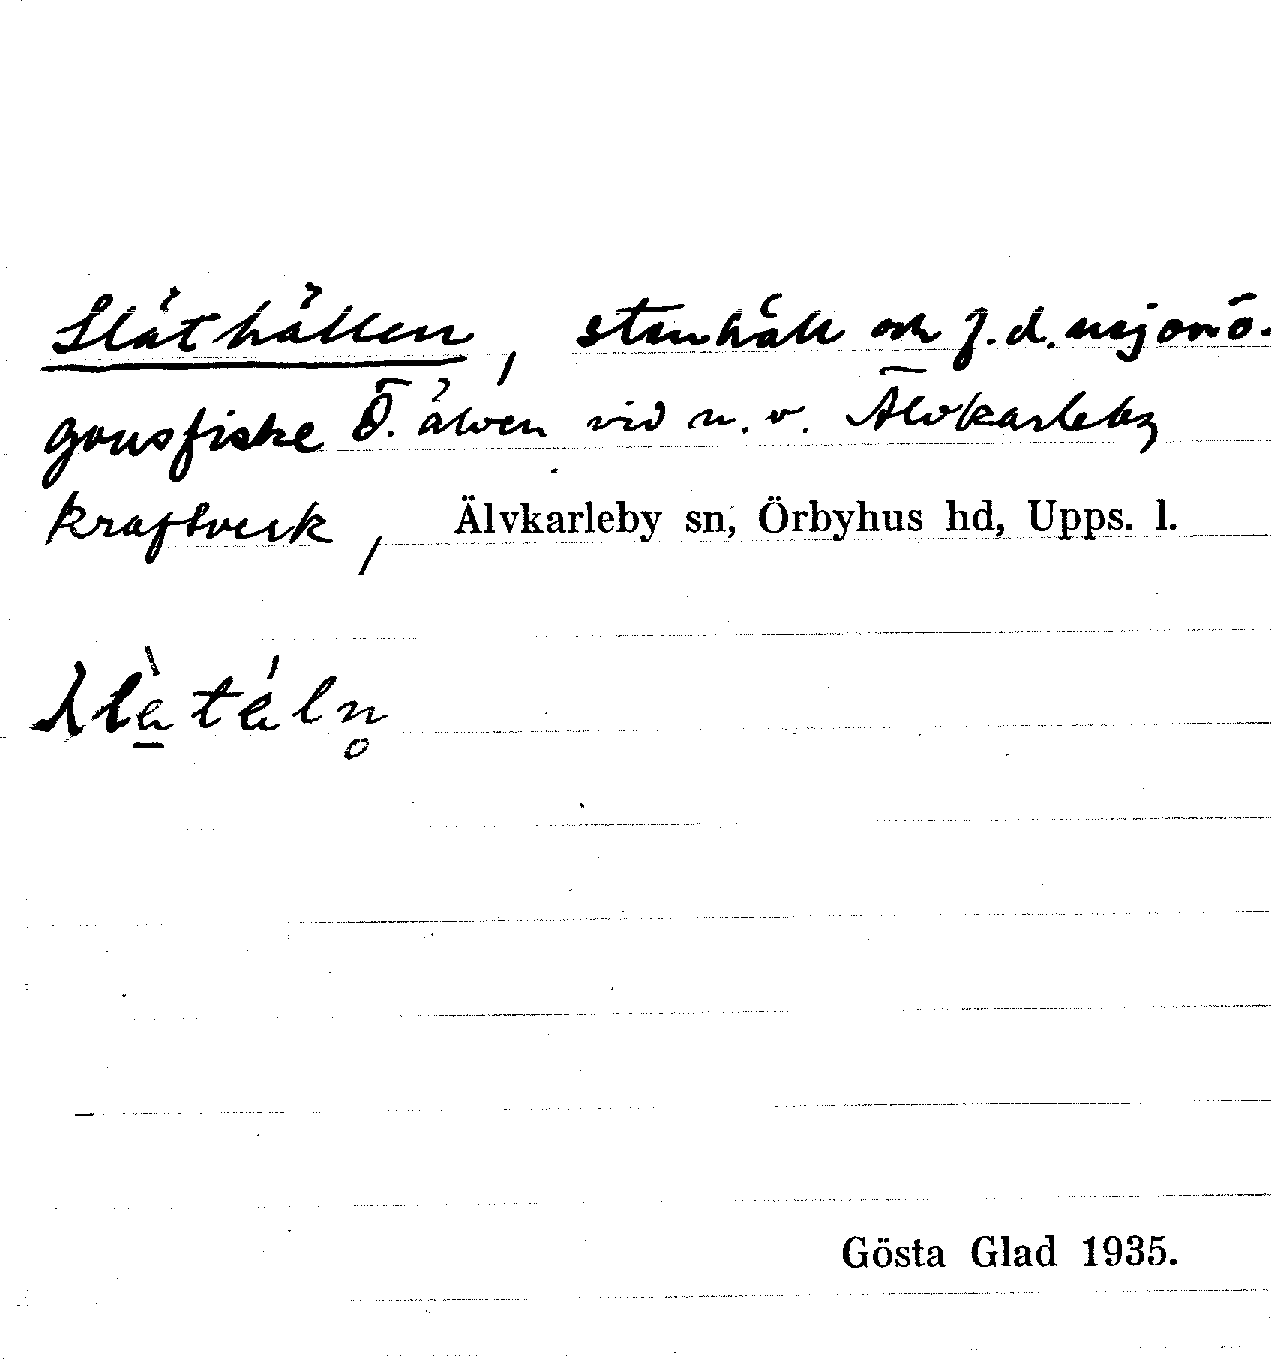 Släthällen, stenhäll och f.d. nejonö-
gonsfiske Ö. älven vid n. v. Älvkarleby
kraftverk, Älvkarleby sn, Örbyhus hd, Upps. l.
Gösta Glad 1935.